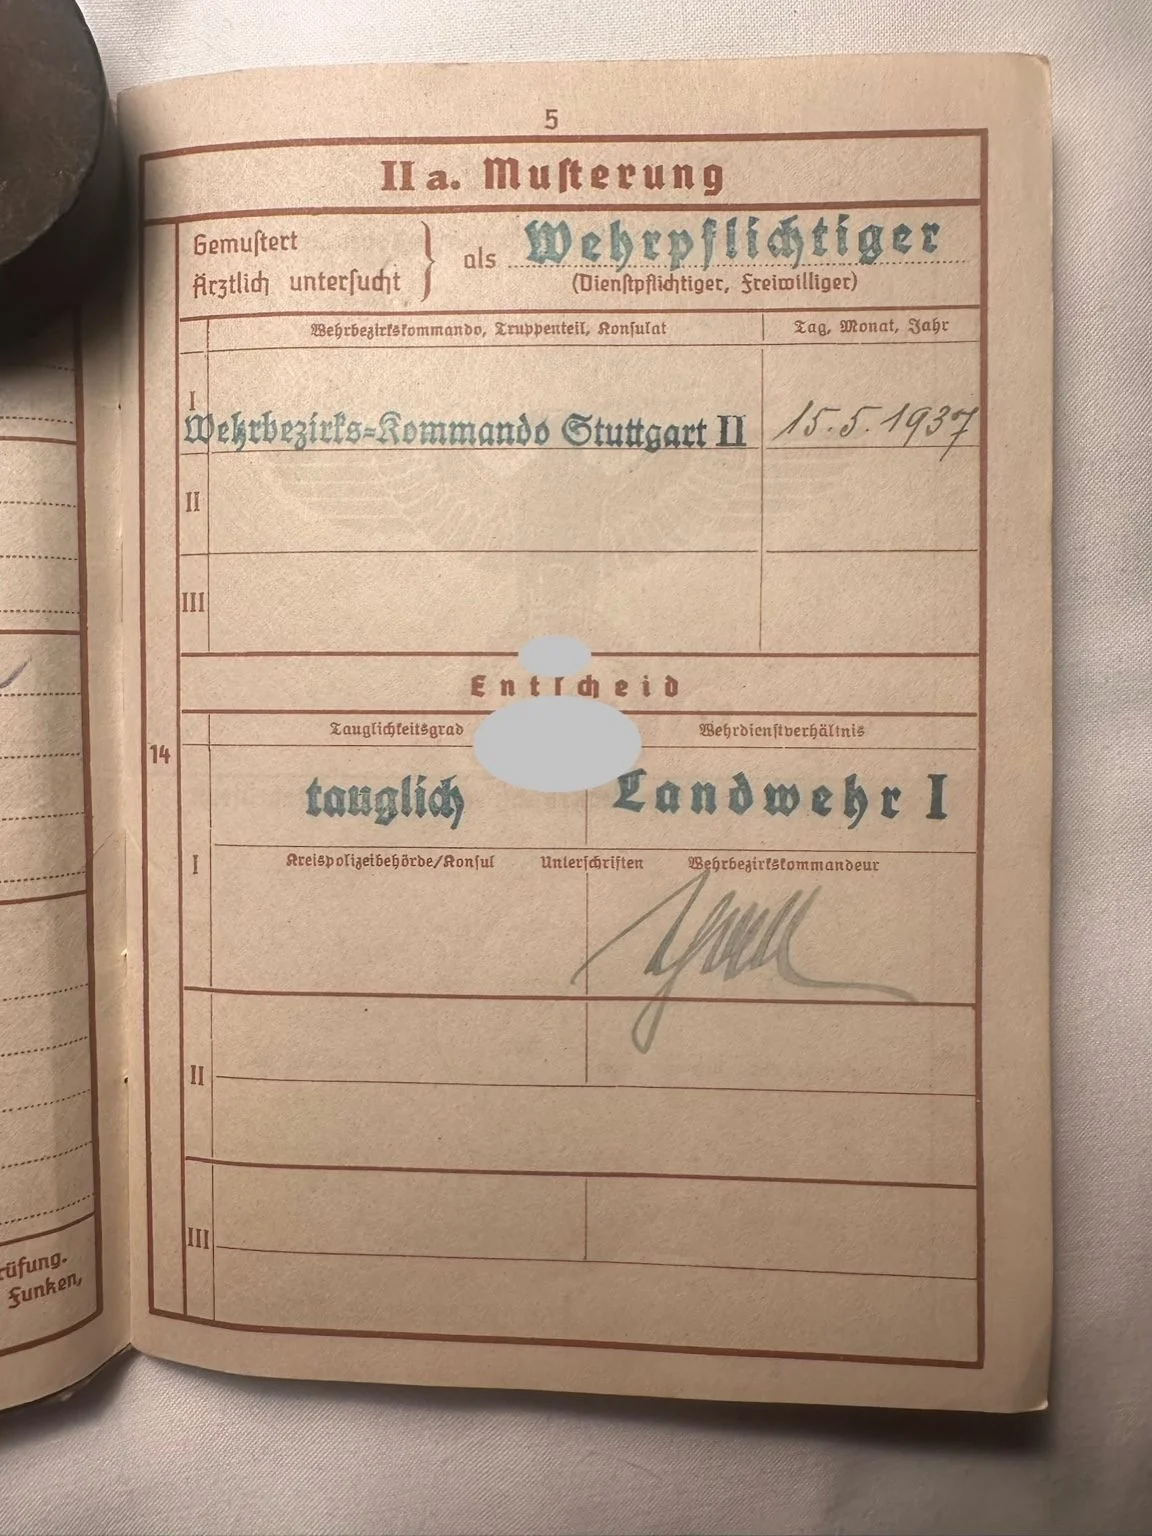 5
II a. Musterung
Gemustert
Ärztlich untersucht } als Wehrpflichtiger
(Dienstpflichtiger, Freiwilliger)
Wehrbezirkskommando, Truppenteil, Konsulat Tag, Monat, Jahr
I
Wehrbezirks-Kommando Stuttgart II 15.5.1937
II
III
Entscheid
Tauglichkeitsgrad Wehrdienstverhältnis
14
tauglich Landwehr I
I
Kreispolizeibehörde/Konsul Unterschriften Wehrbezirkskommandeur
II
III
rüfung.
Funken,